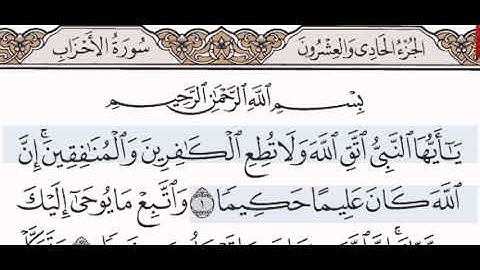 الجُزْءُ الحَادِى وَالعِشْرُونَ سُورَةُ الأَحْزَابِ
بِسْمِ ٱللَّهِ ٱلرَّحْمَٰنِ ٱلرَّحِيمِ
يَٰٓأَيُّهَا ٱلنَّبِىُّ ٱتَّقِ ٱللَّهَ وَلَا تُطِعِ ٱلْكَٰفِرِينَ وَٱلْمُنَٰفِقِينَۗ إِنَّ
ٱللَّهَ كَانَ عَلِيمًا حَكِيمٗا ١ وَٱتَّبِعْ مَا يُوحَىٰٓ إِلَيْكَ